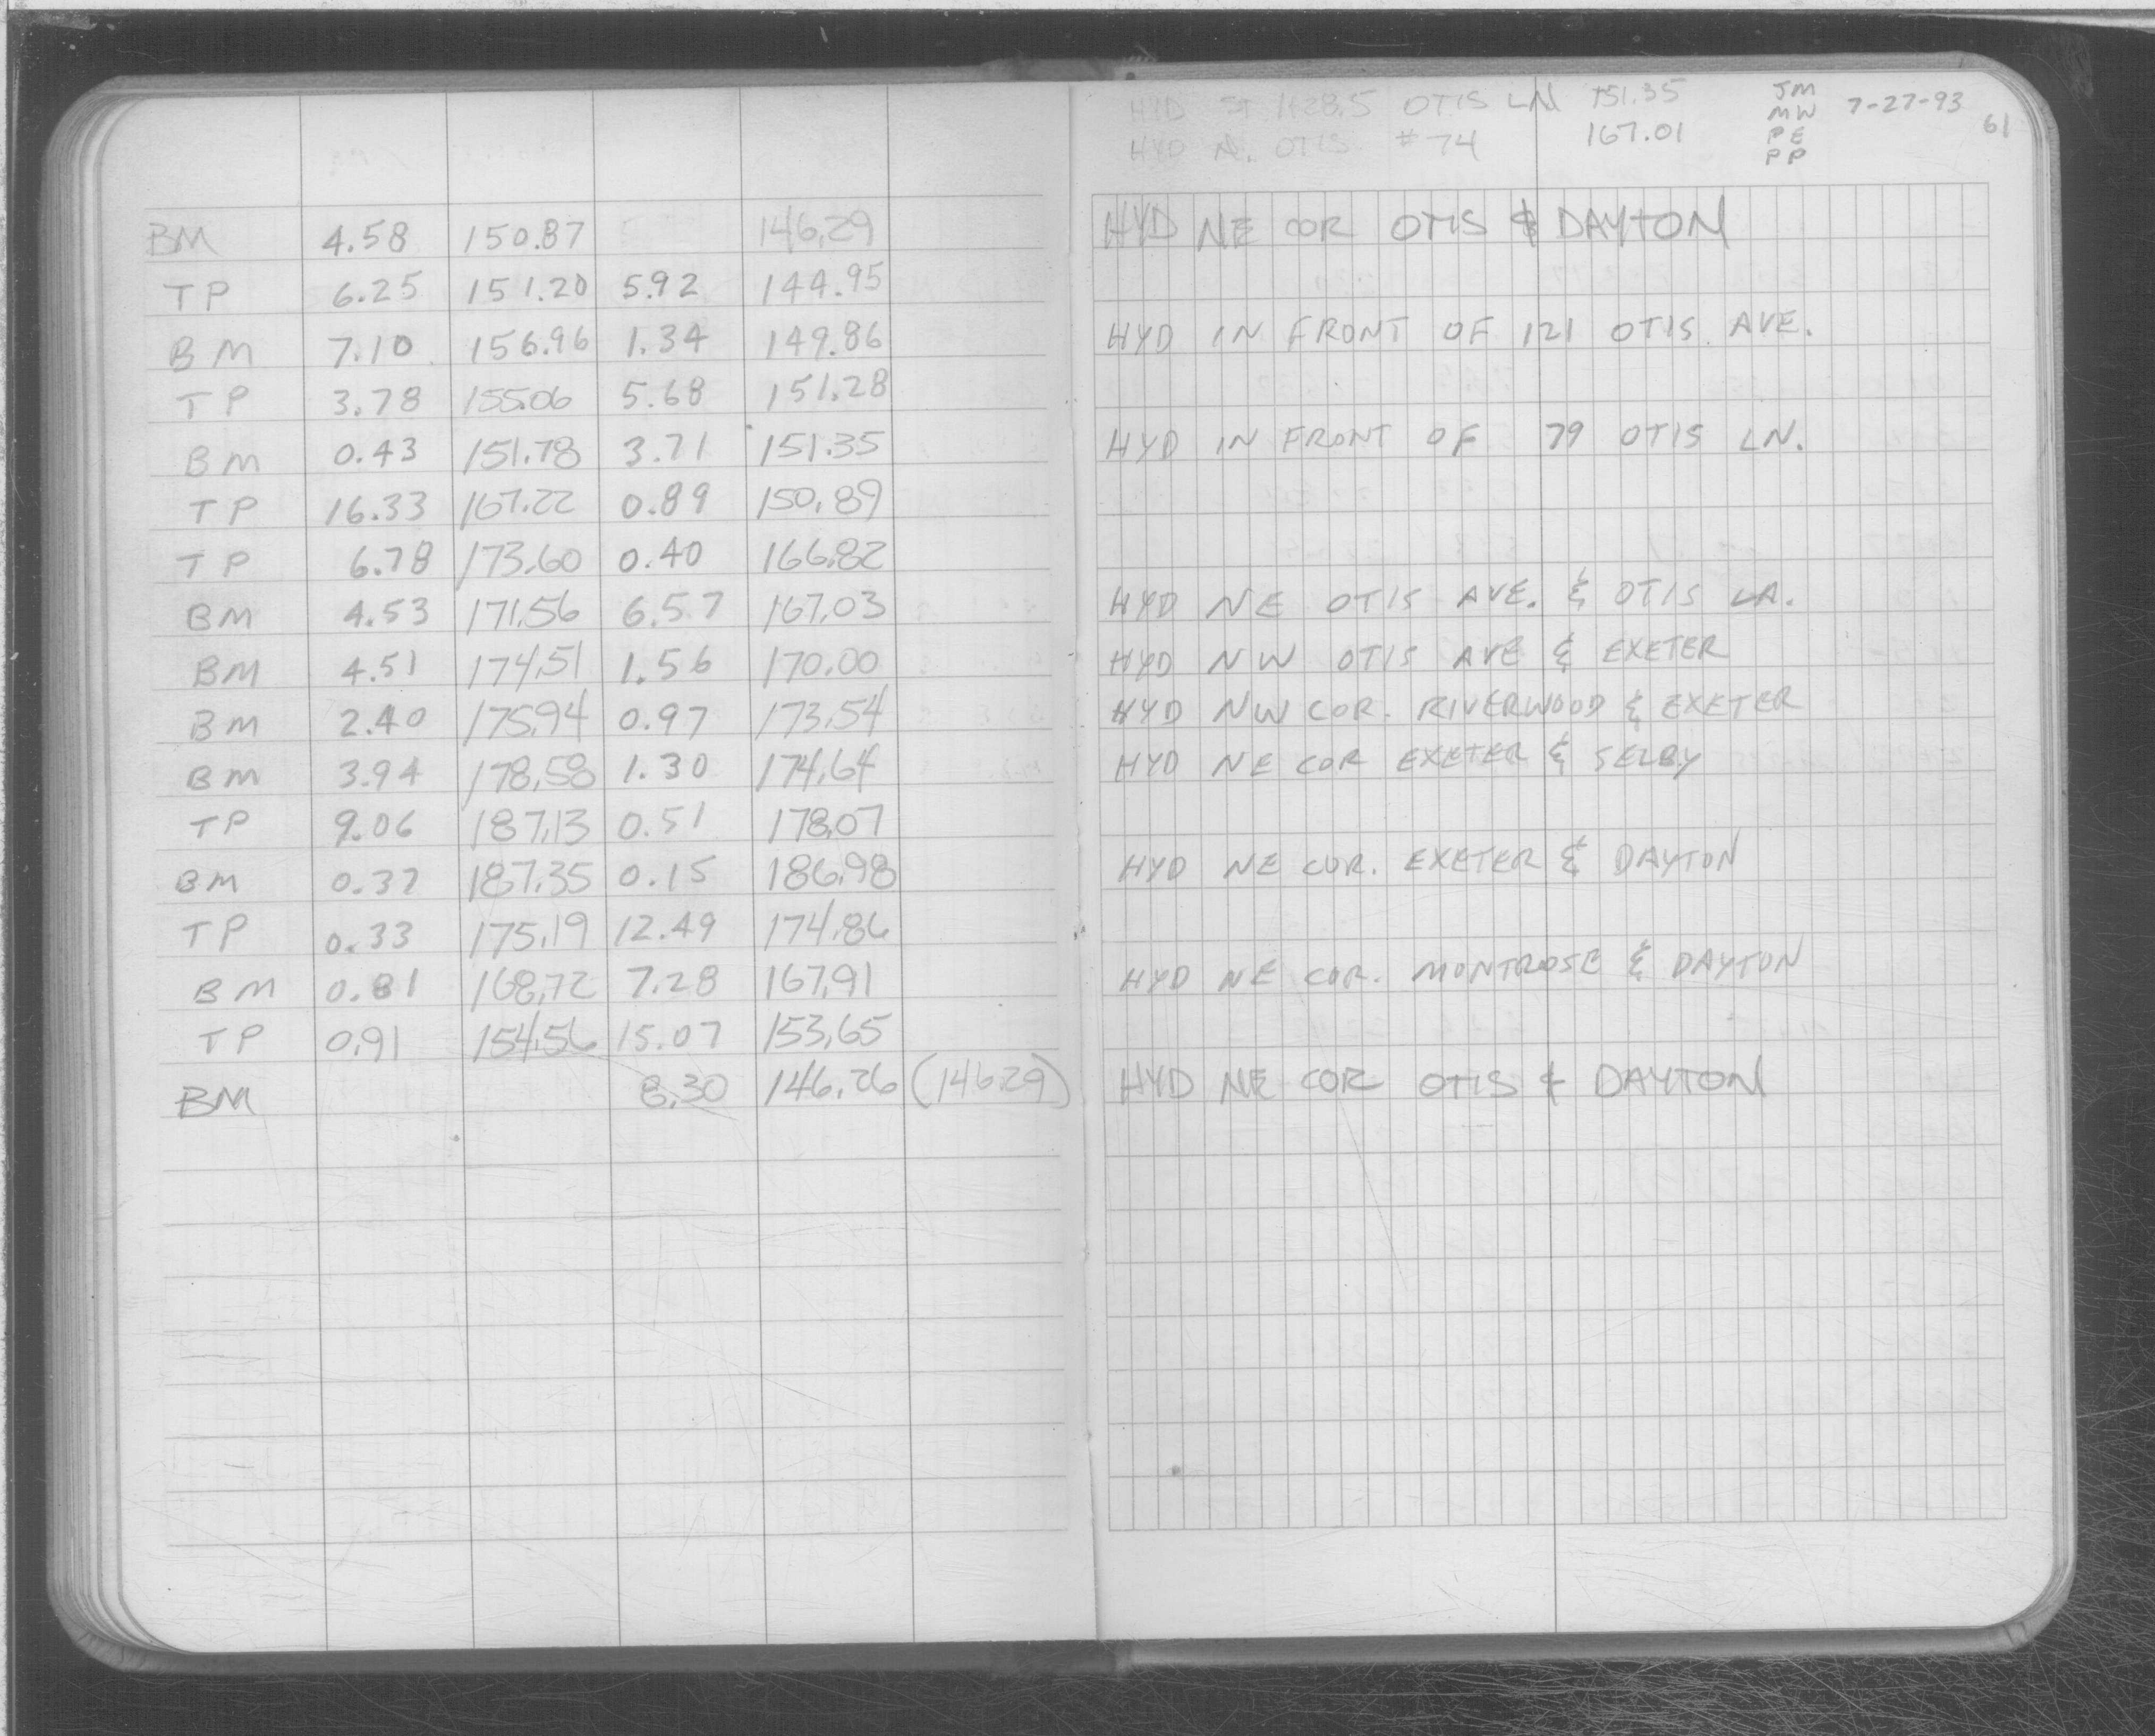 HYD ST 1+28.5 OTIS LN 151.35 JM MW 7-27-93
HYD N. OTIS #74 167.01 PE PP 61
BM 4.58 150.87 146.29 HYD NE COR OTIS & DAYTON
TP 6.25 151.20 5.92 144.95
BM 7.10 156.96 1.34 149.86 HYD IN FRONT OF 121 OTIS AVE.
TP 3.78 155.06 5.68 151.28
BM 0.43 151.78 3.71 151.35 HYD IN FRONT OF 79 OTIS LN.
TP 16.33 167.22 0.89 150.89
TP 6.78 173.60 0.40 166.82
BM 4.53 171.56 6.57 167.03 HYD NE OTIS AVE. & OTIS LA.
BM 4.51 174.51 1.56 170.00 HYD NW OTIS AVE & EXETER
BM 2.40 175.94 0.97 173.54 HYD NW COR. RIVERWOOD & EXETER
BM 3.94 178.58 1.30 174.64 HYD NE COR EXETER & SELBY
TP 9.06 187.13 0.51 178.07
BM 0.37 187.35 0.15 186.98 HYD NE COR. EXETER & DAYTON
TP 0.33 175.19 12.49 174.86
BM 0.81 168.72 7.28 167.91 HYD NE COR. MONTROSE & DAYTON
TP 0.91 154.56 15.07 153.65
BM 8.30 146.26 (146.29) HYD NE COR OTIS & DAYTON